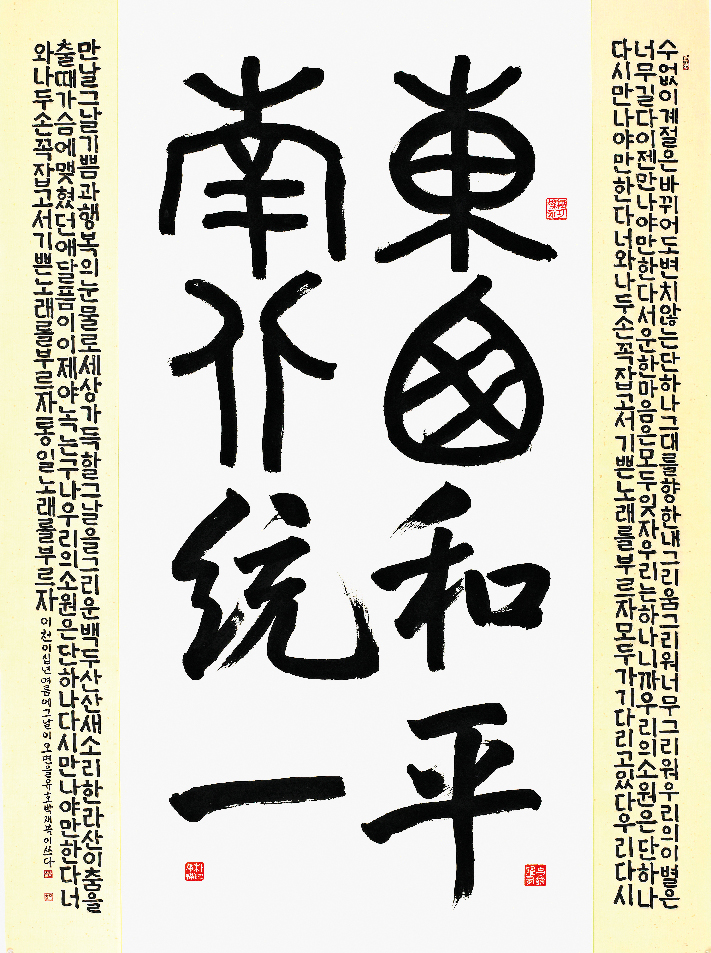 수없이계절은바뀌어도변치않는단하나그대를향한내그리움그리워너무그리워우리의이별은
너무길다이젠만나야만한다서운한마음은모두잊자우리는하나니까우리의소원은단하나
다시만나야만한다너와나두손꼭잡고서기쁜노래를부르자모두가기다리고있다우리다시
東西和平
南北統一
만날그날기쁨과행복의눈물로세상가득할그날을그리운백두산산새소리한라산이춤을
출때가슴에맺혔던애달픔이이제야녹는구나우리의소원은단하나다시만나야만한다너
와나두손꼭잡고서기쁜노래를부르자통일노래를부르자 이천이십년여름에그날이오면을